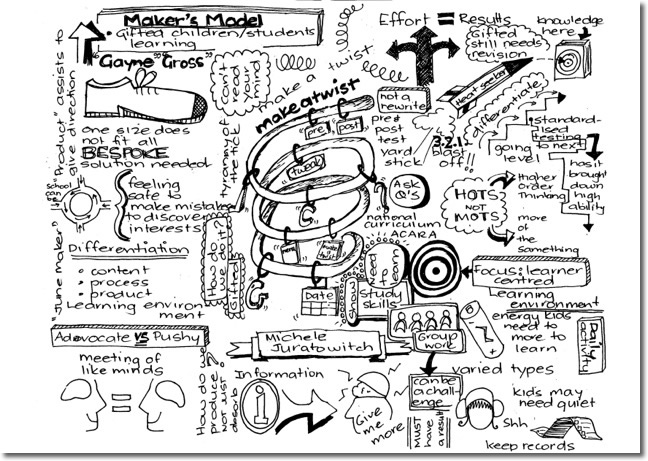 Maker's Model
• Gifted children/students
learning
"Gayne" Gross"
one size does
not fit all
BESPOKE
solution needed
"Product" assists to
give direction
School
feeling
safe to
make mistakes
to discover
interests
"June maker"
Differentiation
• content
• process
• product
Learning environ
ment
Advocate vs Pushy
meeting of
like minds
can't
read
your
mind
tyranny of
the tick
How do
we do it?
Gifted
make a twist
makeatwist
pre
post
tweak
G
G
Date
Effort = Results
not a
rewrite
pre
post
test
yard
stick
Ask
Q's
national
curriculum
ACARA
Need to
learn
show
Study
skills
Michele
Juratowitch
How do we
produce
not just
absorb
Information
i
Give
me
more
Group
work
can be
a chall-
enge
Must
have
a result
Gifted
still needs
revision
Heat seeker
knowledge
here
differentiate
3.2.1.
blast
off!!
going
level
standard-
ised
testing
to next
has it
brought
down
high
ability
HOTS
NOT
MOTS
Higher
Order
Thinking
more
of the
something
Focus: learner
centred
Learning
environment
energy kids
need to
more to
learn
Daily
activity
varied types
kids may
need quiet
Shh
keep records